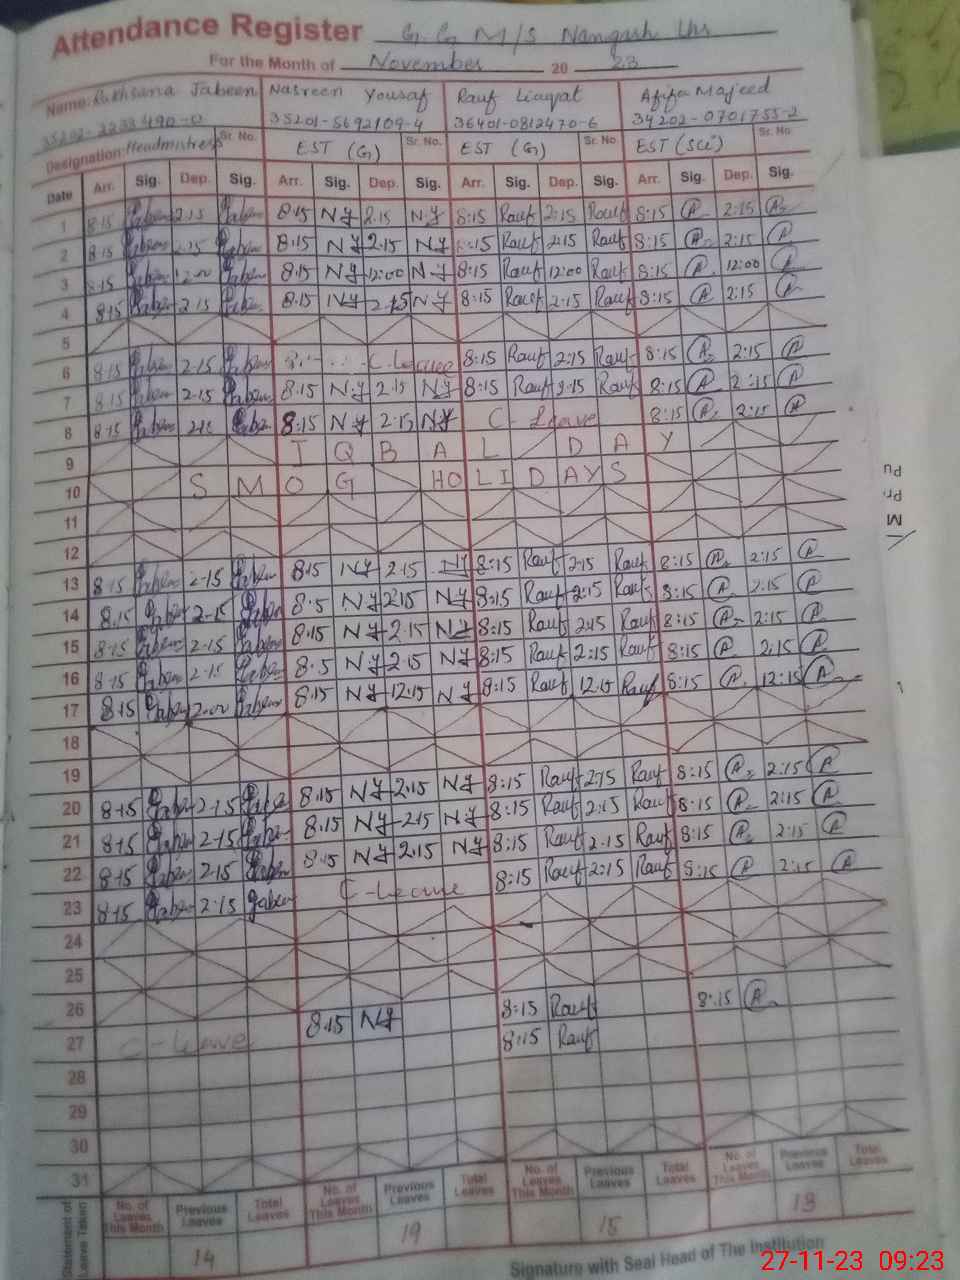 Attendance Register G.G M/S Nangash Lhr
For the Month of November 20 23
Name: Rukhsana Jabeen Nasreen Yousaf Rauf Liaqat Afifa Majeed
35201-5692109-4 36401-0812470-6 34202-0701755-2
Designation: Headmistress Sr. No. EST (G) Sr. No. EST (G) Sr. No. EST (Sci) Sr. No.
Date Arr. Sig. Dep. Sig. Arr. Sig. Dep. Sig. Arr. Sig. Dep. Sig. Arr. Sig. Dep. Sig.
1 8.15 Jabeen 2.15 Jabeen 8.15 NY 2.15 NY 8:15 Rauf 2:15 Rauf 8:15 A 2:15 A
2 8.15 Jabeen 2.15 Jabeen 8.15 NY 2.15 NY 8:15 Rauf 2:15 Rauf 8:15 A 2:15 A
3 8.15 Jabeen 12.00 Jabeen 8.15 NY 12:00 NY 8:15 Rauf 12:00 Rauf 8:15 A 12:00 A
4 8.15 Jabeen 2.15 Jabeen 8.15 NY 2.15 NY 8:15 Rauf 2:15 Rauf 8:15 A 2:15 A
5
6 8.15 Jabeen 2.15 Jabeen C. Leave 8:15 Rauf 2:15 Rauf 8:15 A 2:15 A
7 8.15 Jabeen 2.15 Jabeen 8.15 NY 2.15 NY 8:15 Rauf 2:15 Rauf 8:15 A 2:15 A
8 8.15 Jabeen 2.15 Jabeen 8:15 NY 2.15 NY C- Leave 8:15 A 2:15 A
9 I Q B A L D A Y
10 S M O G HO L I D AY S
11
12
13 8.15 Jabeen 2.15 Jabeen 8.15 NY 2.15 NY 8:15 Rauf 2:15 Rauf 8:15 A 2:15 A
14 8.15 Jabeen 2.15 Jabeen 8.5 NY 2.15 NY 8:15 Rauf 2:15 Rauf 8:15 A 2:15 A
15 8.15 Jabeen 2.15 Jabeen 8.15 NY 2.15 NY 8:15 Rauf 2:15 Rauf 8:15 A 2:15 A
16 8.15 Jabeen 2.15 Jabeen 8.5 NY 2.15 NY 8:15 Rauf 2:15 Rauf 8:15 A 2:15 A
17 8.15 Jabeen 12.00 Jabeen 8.15 NY 12.15 NY 8:15 Rauf 12:15 Rauf 8:15 A 12:15 A
18
19
20 8.15 Jabeen 2.15 Jabeen 8.15 NY 2.15 NY 8:15 Rauf 2:15 Rauf 8:15 A 2:15 A
21 8.15 Jabeen 2.15 Jabeen 8.15 NY 2.15 NY 8:15 Rauf 2:15 Rauf 8:15 A 2:15 A
22 8.15 Jabeen 2.15 Jabeen 8.15 NY 2.15 NY 8:15 Rauf 2.15 Rauf 8:15 A 2:15 A
23 8.15 Jabeen 2.15 Jabeen C-Leave 8:15 Rauf 2:15 Rauf 8:15 A 2:15 A
24
25
26
27 C-Leave 8.15 NY 8:15 Rauf 8:15 A
28 8:15 Rauf
29
30
31
Statement of Leave Taken No. of Leaves This Month Previous Leaves Total Leaves No. of Leaves This Month Previous Leaves Total Leaves No. of Leaves This Month Previous Leaves Total Leaves No. of Leaves This Month Previous Leaves Total Leaves
14 19 15 13
Signature with Seal Head of The Institution
27-11-23 09:23